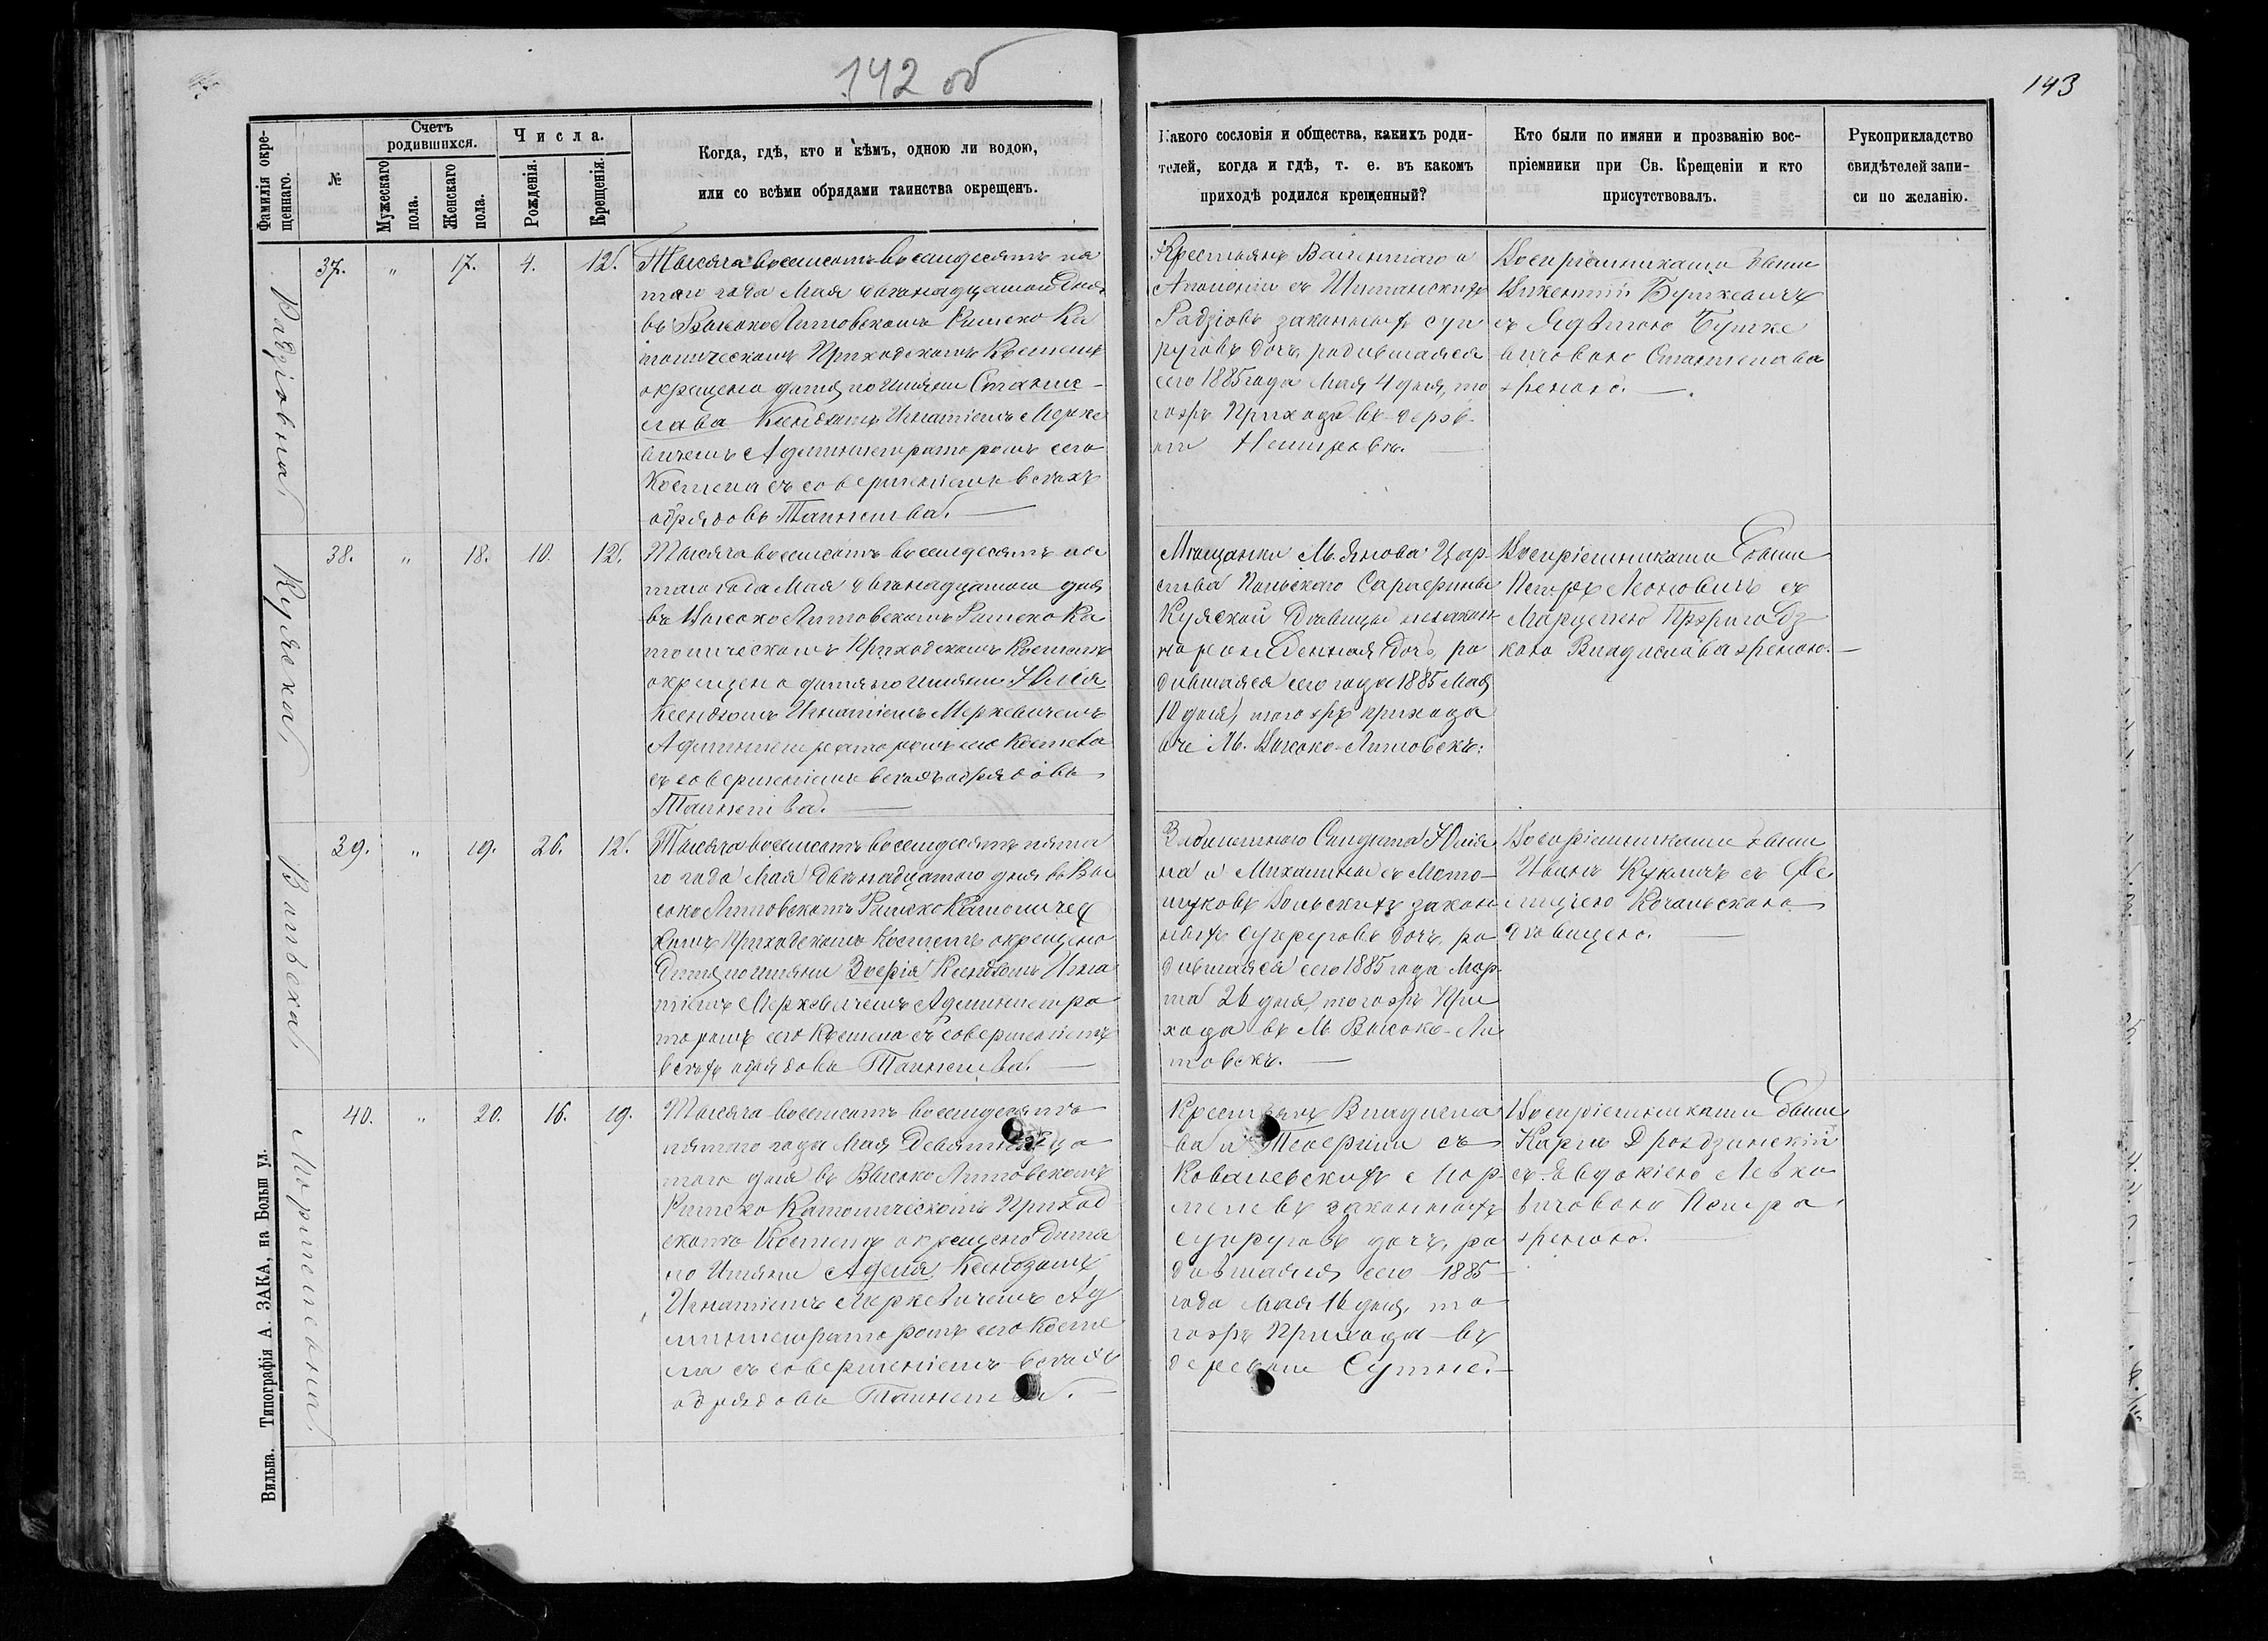 142 об
143
Фамилія окре-
щеннаго.
№
Счетъ
родившихся.
Мужескаго
пола.
Женскаго
пола.
Числа.
Рожденія.
Крещенія.
Когда, гдѣ, кто и кѣмъ, одною ли водою,
или со всѣми обрядами таинства окрещенъ.
Какого сословія и общества, какихъ роди-
телей, когда и гдѣ, т. е. въ какомъ
приходѣ родился крещенный?
Кто были по имяни и прозванію вос-
пріемники при Св. Крещеніи и кто
присутствовалъ.
Рукоприкладство
свидѣтелей запи-
си по желанію.
Радзіовна
37. " 17. 4. 12.
Тысяча восемсотъ восемдесятъ пя
таго года Мая двенадцатого дня
въ Высоко Литовскомъ Римско Ка
толическомъ Приходскомъ Костелѣ
окрещено дитя по имяни Станис-
лава Ксендзомъ Игнатіемъ Мерке
вичемъ Администраторомъ сего
Костела съ совершеніемъ всѣхъ
обрядовъ Таинства.
Крестьянъ Валентаго и
Аполоніи съ
Радзіовъ законныхъ суп
руговъ дочь, родившаяся
сего 1885 года Мая 4 дня, то
гожъ Прихода въ дерев-
ни
Воспріемниками были
Викентій Бушкевичъ
съ Бушке
вичовою Станислава
женою.
Куляска
38. " 18. 10. 12.
Тысяча восемсотъ восемдесятъ пя
таго года Мая двенадцатого дня
въ Высоко Литовскомъ Римско Ка
толическомъ Приходскомъ Костелѣ
окрещено дитя по имяни Юлія
Ксендзомъ Игнатіемъ Меркевичемъ
Администраторомъ сего Костела
съ совершеніемъ всѣхъ обрядовъ
Таинства.
Мѣщанки М. Янова Цар-
ства Польскаго Сарафины
Куляской Дѣвицы незакон-
норожденная дочь, ро
дившаяся сего года 1885 Мая
10 дня, того жъ прихода
М. Высоко-Литовскѣ.
Воспріемниками были
Петръ Леоновичъ съ
Марцелею
кою Владислава женою.
Вильска
39. " 19. 26. 12.
Тысяча восемсотъ восемдесятъ пята
го года Мая двенадцатого дня въ Вы
соко Литовскомъ Римско Католичес
комъ Приходскомъ Костелѣ окрещено
дитя по имяни Зофія Ксендзомъ Игна
тіемъ Меркевичемъ Администра
торомъ сего Костела съ совершеніемъ
всѣхъ обрядовъ Таинства.
Солдата Юлія
на и Михалины съ
Вольскихъ закон
ныхъ супруговъ дочь, ро
дившаяся сего 1885 года Мар-
та 26 дня, тогожъ При
хода въ М. Высоко-Ли
товскѣ.
Воспріемниками были
Иванъ съ Фе
лицею
дѣвицею.
40. " 20. 16. 19.
Тысяча восемсотъ восемдесятъ
пятаго года Мая девятнадца
того дня въ Высоко Литовскомъ
Римско Католическомъ Приход
скомъ Костелѣ окрещено дитя
по имяни Аделя Ксендзомъ
Игнатіемъ Меркевичемъ Ад
министраторомъ сего Косте
ла съ совершеніемъ всѣхъ
обрядовъ Таинства.
Крестьянъ Владисла
ва и Теофили съ
Ковалевскихъ
законныхъ
супруговъ дочь, ро
дившаяся сего 1885
года Мая 16 дня, то
гожъ Прихода въ
деревни
Воспріемниками были
Карлъ Дроздзинскій
съ Евдокіею Левко
вичовою Петра
женою.
Вильна. Типографія А. ЗАКА, на Больш ул.